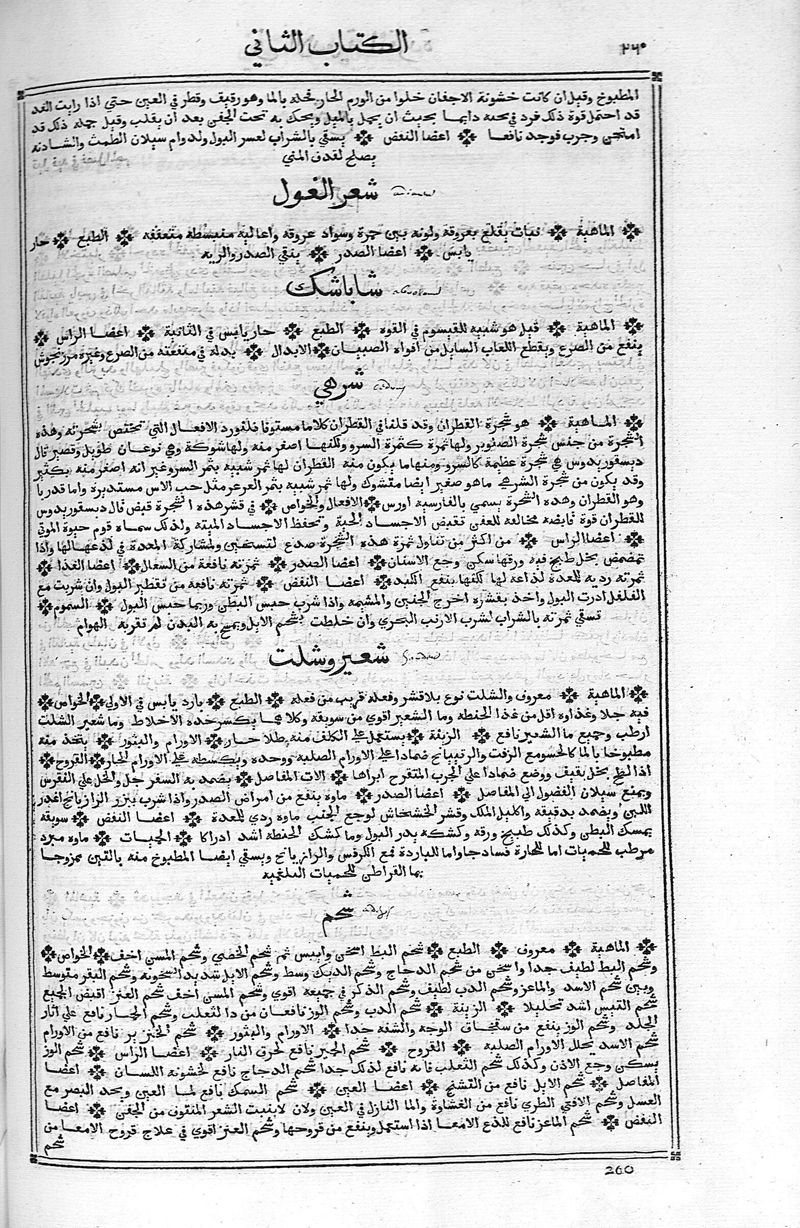 الكتاب الثاني
٢٦٠
المطبوخ وقيل ان كانت خشونة الاجفان خلوا من الورم الحار فحله بالما وهو رقيف وقطر في العين حتي اذا رايت العد
قد احتمل قوة ذلك فزد في تخنه دايما بحيث ان يحمل بالميل ويحك به تحت الجفن بعد أن يقلب وقيل جمله ذلك قد
امتحن وجرب فوجد نافعا اعضا النفض يسقي بالشراب لعسر البول ولدوام سيلان الطمث والشادنه
يصلح لقذف المني
شعر الغول
الماهية نبات يقلع بعروقه ولونه بين حمرة وسواد عروقه واعاليه منبسطة متعففه الطبع حار
يابس اعضا الصدر ينقي الصدر والريه
شاباشك
الماهية قيل هو شبيه للقيسوم في القوه الطبع حار يابس في الثانية اعضا الراس
ينفع من الصرع ويقطع اللعاب السايل من افواه الصبيان الابدال بدله في منفعته من الصرع وغيره مرزنجوش
شرهي
الماهية هو شجرة القطران وقد قلنا في القطران كلاما مستوفا فلنورد الافعال التي تختص بشجرته وهذه
الشجرة من جنس شجرة الصنوبر ولها ثمرة كثمرة السرو ولكنها اصغر منه ولها شوكة وهي نوعان طويل وقصير قال
ديسقوريدوس هي شجرة عظيمة كالسرو ومنها ما يكون منه القطران لها ثمر شبيه بثمر السرو غير انه اصغر منه بكثير
وقد يكون من شجرة الشرهي ما هو صغير ايضا مشوك ولها ثمر شبيه بثمر العرعر مثل حب الاس مستديرة واما قدريا
وهو القطران وهذه الشجرة يسمي بالفارسية اورس الافعال والخواص في قشر هذه الشجرة قبض قال ديسقوريدوس
للقطران قوة قابضه مخالفه للعفن تقبض الاجساد الحية وتحفظ الاجساد الميتة ولذلك سماه قوم حيوة الموتي
اعضا الراس من اكثر من تناول ثمرة هذه الشجرة صدع لتسخين ومشاركة المعدة في لذعها لها واذا
تمضمض بخل طبخ فيه ورقها سكن وجع الاسنان اعضا الصدر ثمرته نافعة من السعال اعضا الغذا
ثمرته رديه للمعدة لذاعة لها لكنها ينفع الكبد اعضا النفض ثمرته نافعة من تقطير البول وان شربت مع
الفلفل ادرت البول واخذ بقشره اخرج الجنين والمشيمه واذا شرب حبس البطن وربما حبس البول السموم
تسقي ثمرته بالشراب لشرب الارنب البحري وان خلطت بشحم الايل ويمسح به البدن لم تقربه الهوام
شعير وشلت
الماهية معروف والشلت نوع بلا قشر وفعله قريب من فعله الطبع بارد يابس في الاولي الخواص
فيه جلا وغذاوه اقل من غذا الحنطه وما الشعير اقوي من سويقه وكلاهما يكسر حدة الاخلاط وما شعير الشلت
ارطب وجميع ما الشعير نافع الزينة يستعمل علي الكلف منه طلا حار الاورام والبثور يتخذ منه
مطبوخا بالما كالحسو مع الزفت والرتيبانج ضمادا علي الاورام الصلبه ووحده وبكشكه علي الاورام الحار القروح
اذا لطخ بخل ثقيف ووضع ضمادا علي الجرب المتقرح ابراها الات المفاصل يضمد به السفرجل والخل علي النقرس
ويمنع سيلان الفضول الي المفاصل اعضا الصدر ماوه ينفع من امراض الصدر واذا شرب ببزر الرازيانج اغذر
اللبن ويضمد بدقيقه واكليل الملك وقشر الخشخاش لوجع الجنب ماوه ردي للمعدة اعضا النفض سويقه
يمسك البطن وكذلك طبيخ ورقه وكشكه يدر البول وما كشك الحنطه اشد ادرارا الحميات ماوه مبرد
مرطب للحميات اما للحارة فساذجا واما للباردة فمع الكرفس والرازيانج ويسقي ايضا المطبوخ منه بالتين ممزوجا
بما القراطن للحميات البلغميه
شحم
الماهية معروف الطبع شحم البط اسخن وايبس ثم شحم الخصي وشحم المسن اخف الخواص
وشحم البط لطيف جدا واسخن من شحم الدجاج وشحم الديك وسط وشحم الايل شديد السخونه وشحم البقر متوسط
وبين شحم الاسد والماعز وشحم الدب لطيف وشحم الذكر في جميعه اقوي وشحم المسن اخف شحم العنز اقبض الجميع
شحم التيس اشد تحليلا الزينة شحم الدب وشحم الوز نافعان من دا لثعلب وشحم الحمار نافع علي اثار
الجلد وشحم الوز ينفع من الوجه والشفه جدا الاورام والبثور شحم الخنزير نافع من الاورام
شحم الاسد يحلل الاورام الصلبه القروح شحم الحمير نافع لحرق النار اعضا الراس شحم الوز
يسكن وجع الاذن وكذلك شحم الثعلب فانه نافع لذلك جدا شحم الدجاج نافع لخشونه اللسان اعضا
المفاصل شحم الايل نافع من التشنج اعضا العين شحم السمك نافع لما العين ويحد البصر مع
العسل وشحم الافعي الطري نافع من الغشاوة والما النازل في العين ولان لا ينبت الشعر المنتوف من الجفن اعضا
النفض شحم الماعز نافع للذع الامعا اذا استعمل وينفع من قروحها وشحم العنز اقوي في علاج قروح الامعا من
شحم
260